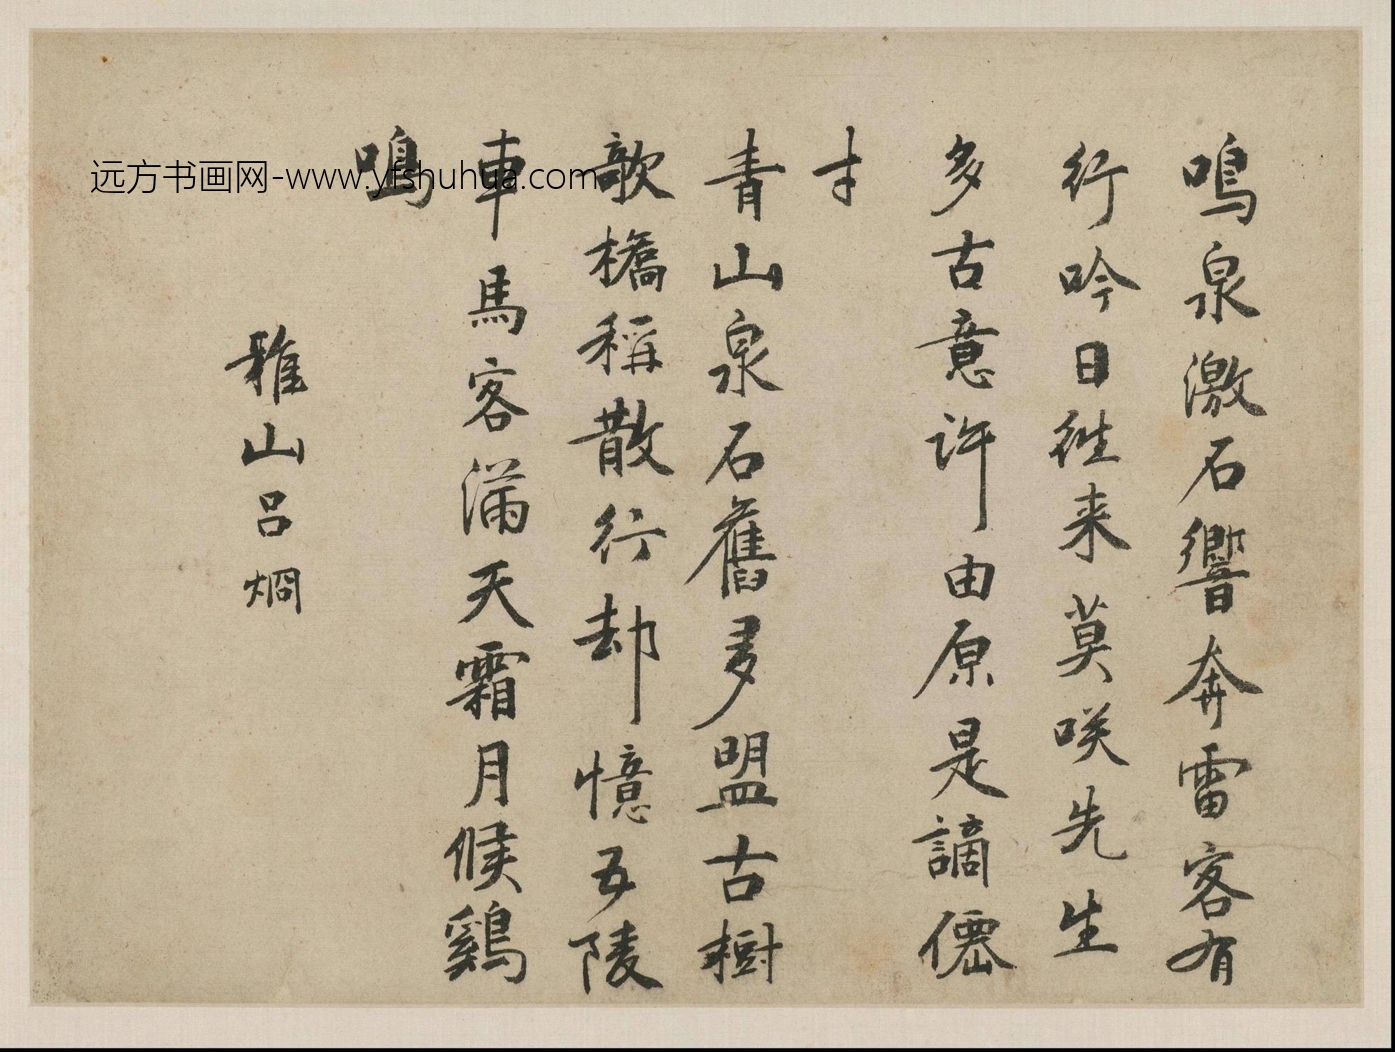 鳴泉激石響奔雷客有
行吟日往来莫咲先生
多古意許由原是謫僊
才
青山泉石舊多盟古樹
欹橋稱散行却憶五陵
車馬客滿天霜月候鷄
鳴
雅山呂烱
远方书画网-www.yfshuhua.com